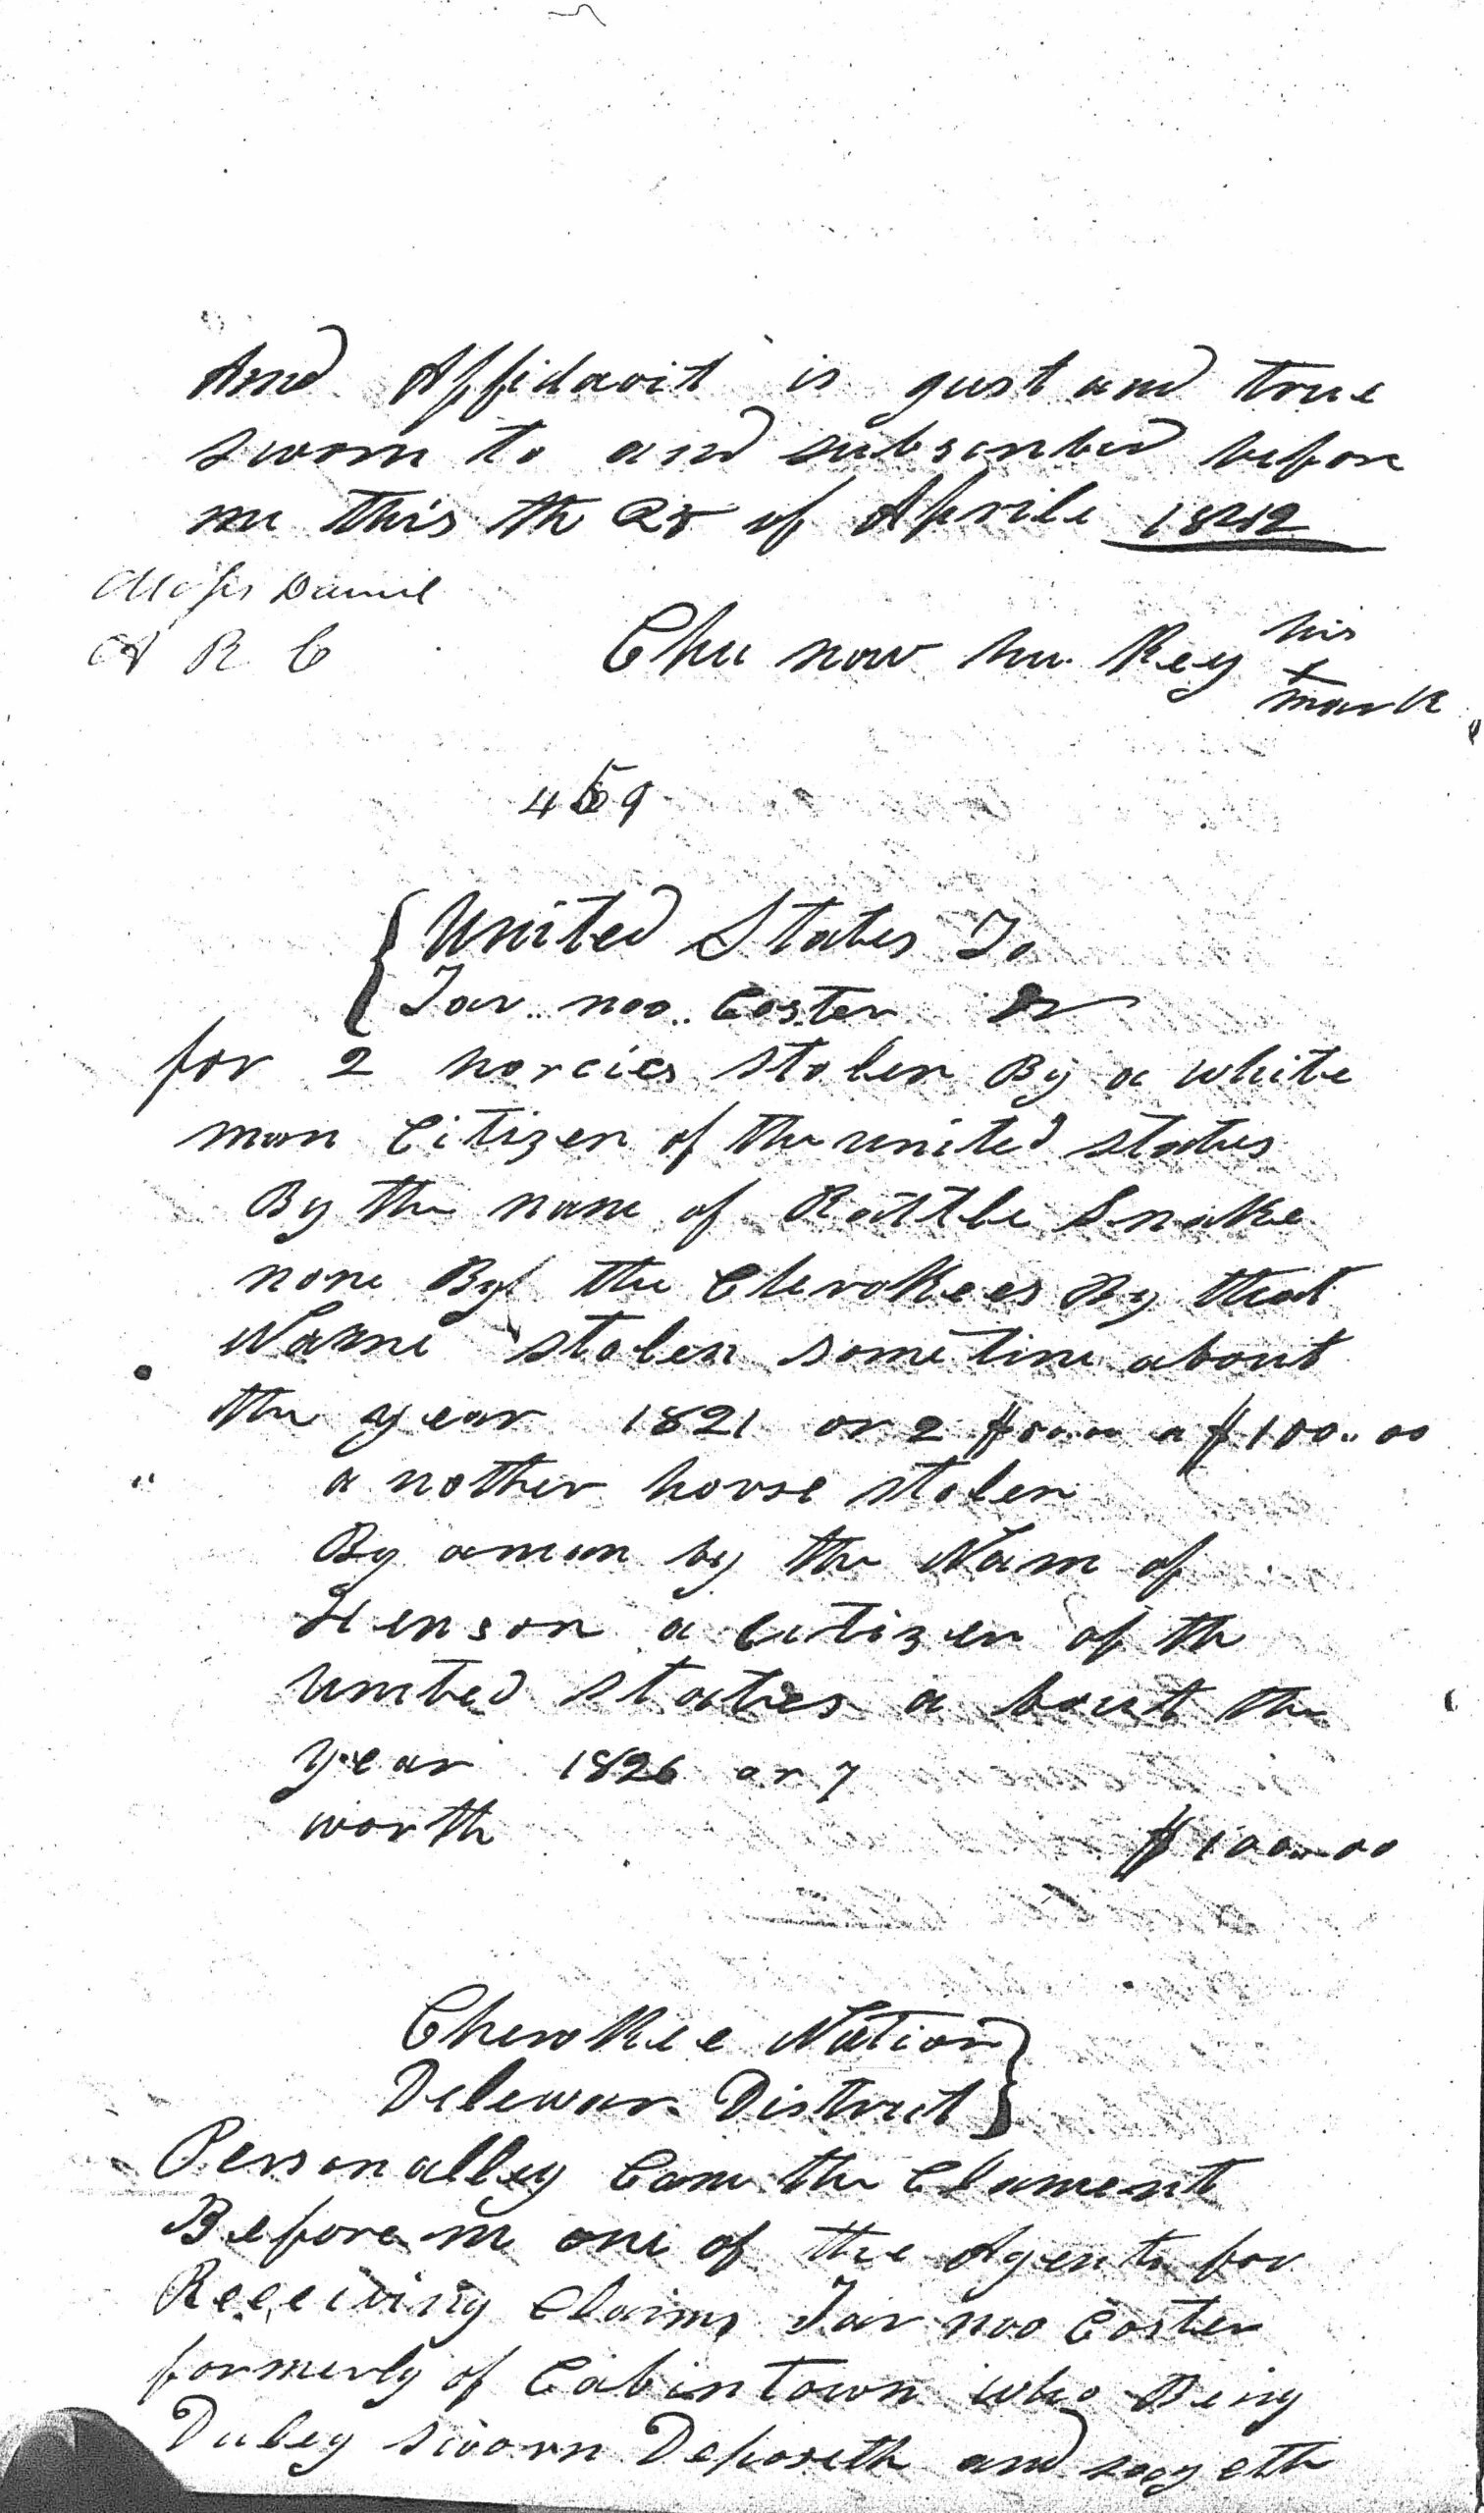 And Affidavit is gust and true
sworn to and subscribed before
me this th 25 of Aprile 1842
Moses Daniel
A R C
Chu now hu Key his
x
mark
459
United States To
Tar.. noo.. Coster Dr
for 2 horcies stolen By a white
man Citizen of the united states
By the name of Rattle Snake
none By the Cherokees By that
Name stolen sometime about
the year 1821 or 2 $100..00
" a nother horse stolen
By aman by the Nam of
Henson a Citizen of th
united staties a bout the
year 1826 or 7
worth $100..00
Cherokee Nation
Delewar District
Personalley Came the Clament
Before me one of the Agents for
Receiving Claims Tar noo Coster
formerly of Cabin Town who Being
Duley sworn Deposeth and sayeth